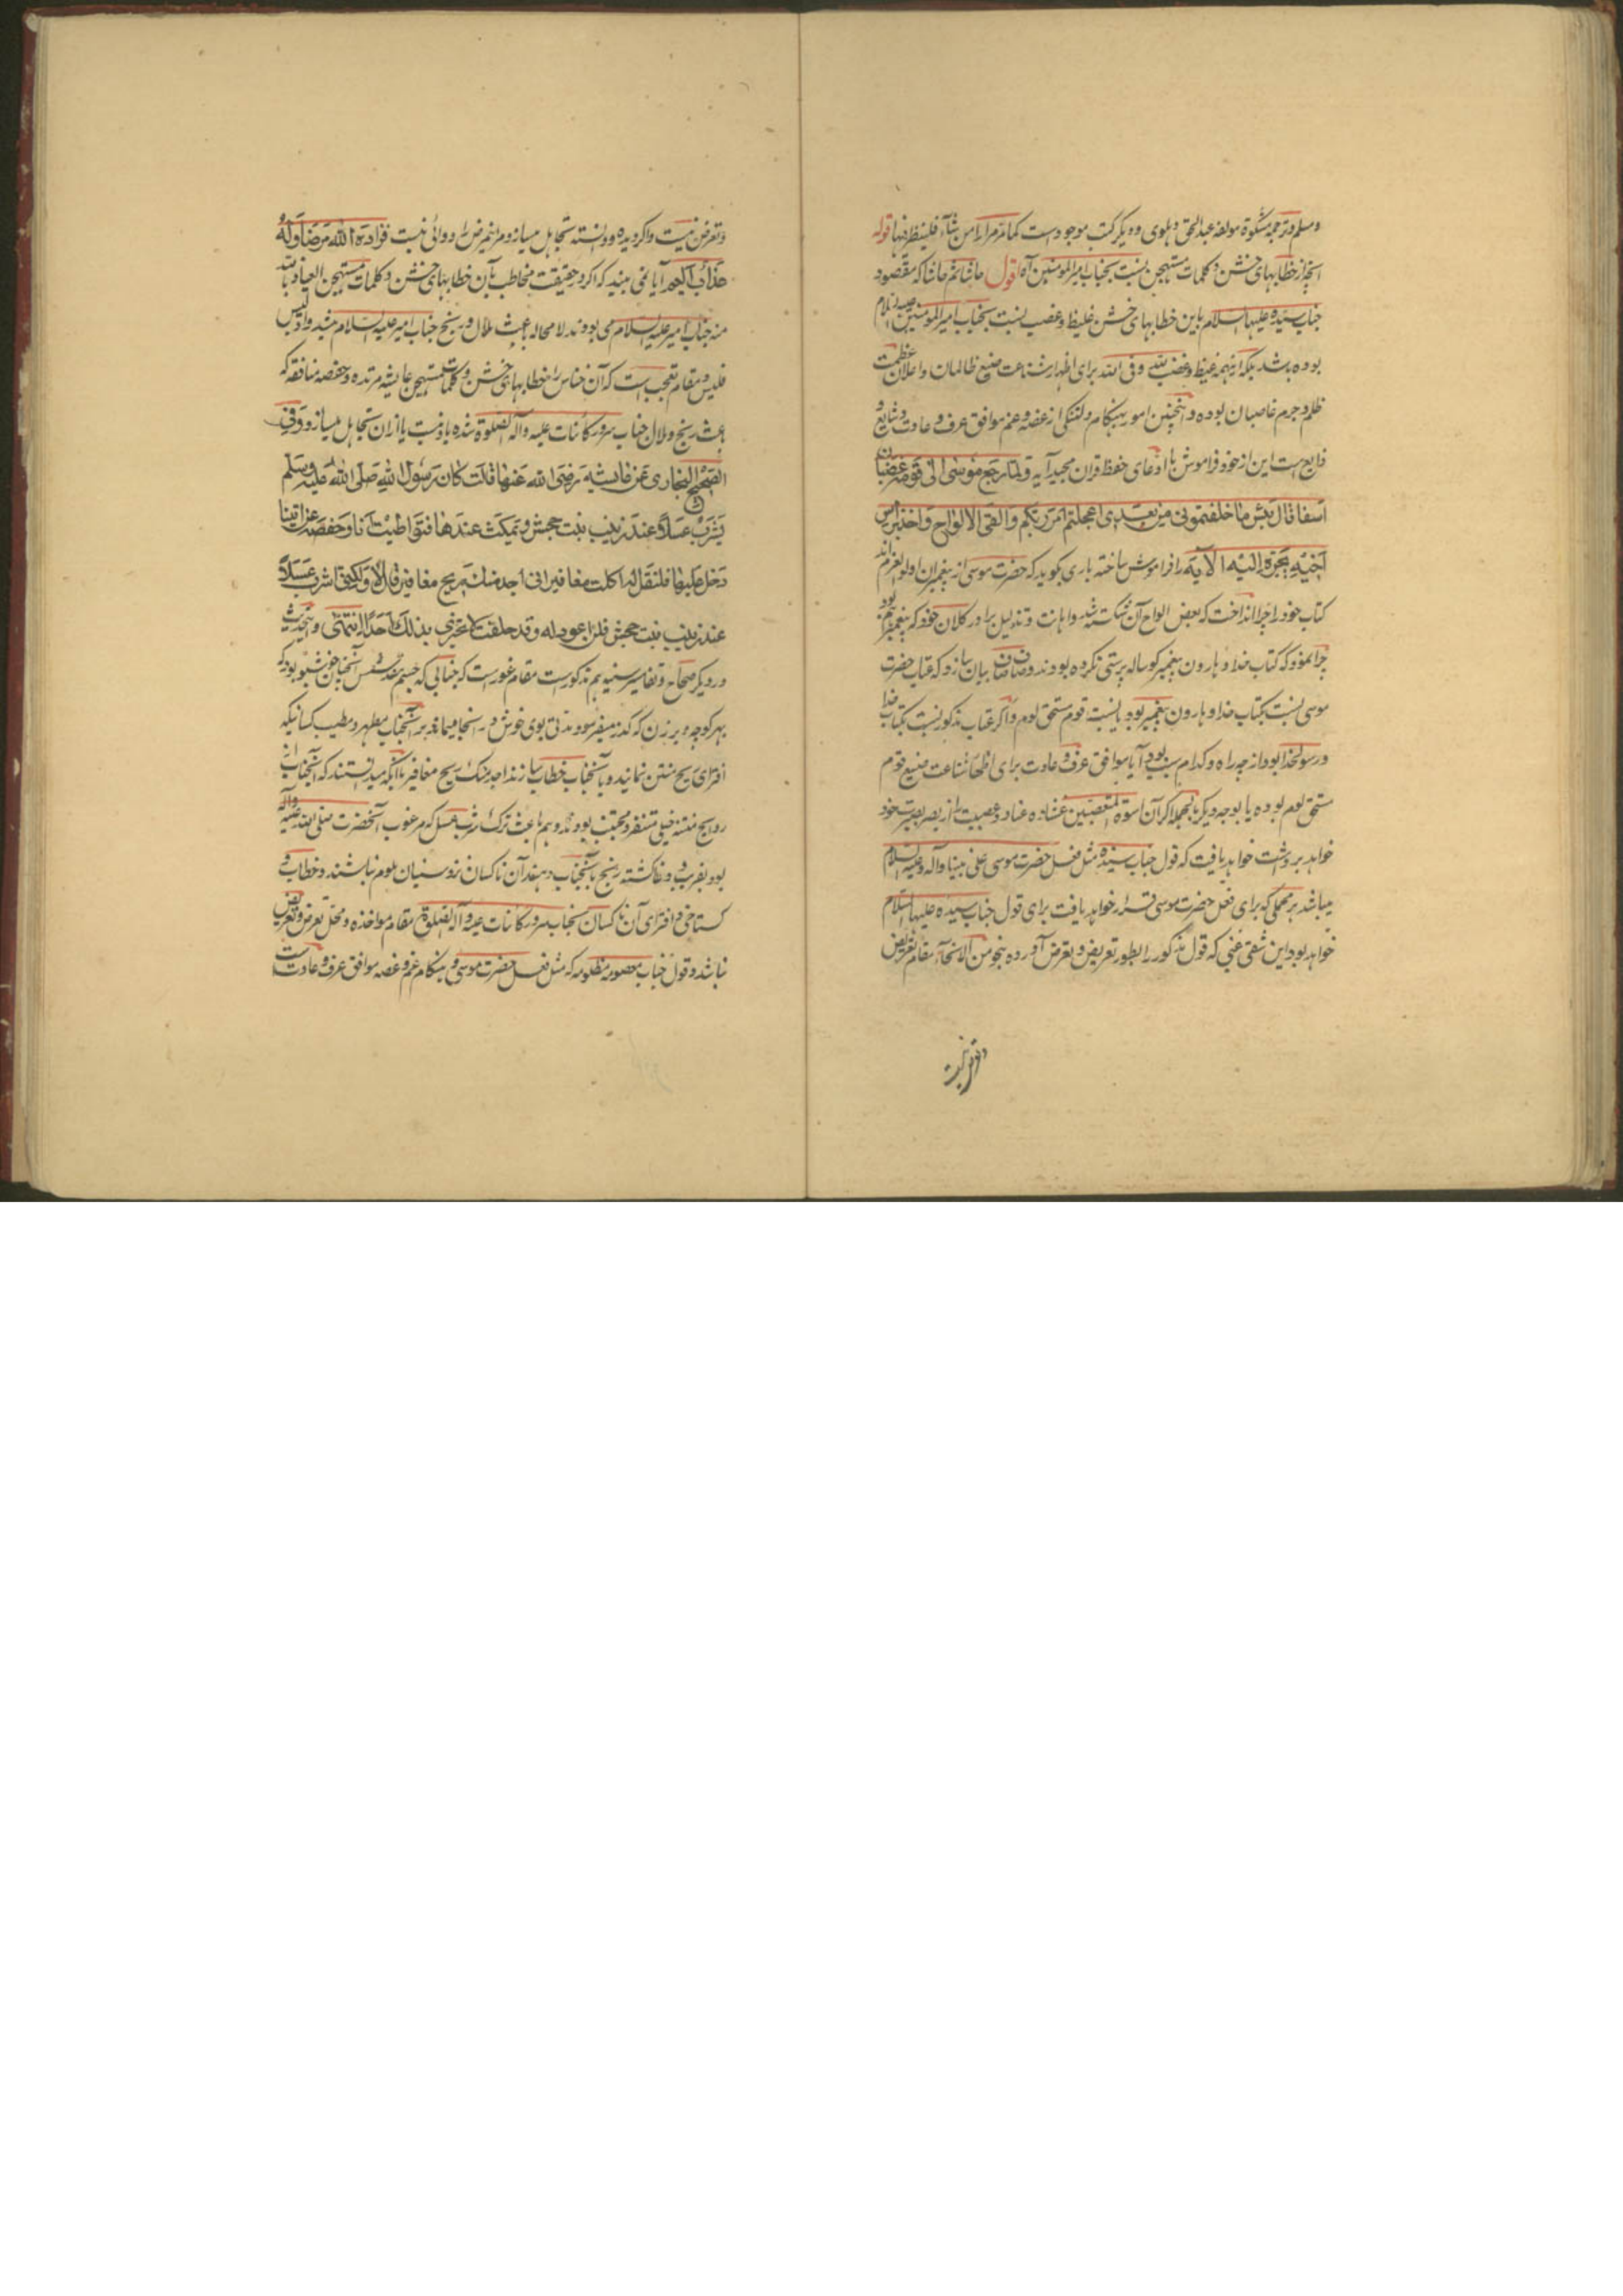 ومسلم و ترجمه مشکوة مولفه عبد الحق دهلوی و دیگر کتب موجود است کما مر مرارا من شاء فلینظر فیها قوله
آنچه از خطابهای خشن و کلمات مستهجن بنسبت بجناب امیر المومنین آه اقول حاشا ثم حاشا که مقصود
جناب سیده علیها السلام باین خطابهای خشن غلیظ و غضب نسبت بجناب امیر المومنین علیه السلام
بوده باشد بلکه اینهمه غیظ و غضب لله وفی الله برای اظهار شناعت صنیع ظالمان و اعلان عظمت
ظلم و جرم غاصبان بوده و همچنین امور بهنگام دلتنگی از غصه و غم موافق عرف و عادت و شایع و
ذایع است این از خود فراموش با ادعای حفظ قران مجید آیه و لما رجع موسی الی قومه غضبان
اسفا قال بئس ما خلفتمونی من بعدی اعجلتم امر ربکم والقی الالواح واخذ براس
اخیه یجره الیه الآیه را فراموش ساخته باری بگوید که حضرت موسی از پیغمبران اولو العزم اند
کتاب خود را چرا انداخت که بعض الواح آن شکسته شد و اهانت و تذلیل برادر کلان خود که پیغمبر هم بود
چرا نمود که کتاب خدا و هارون پیغمبر گوساله پرستی نکرده بودند و صاف صاف بیان سازد که عتاب حضرت
موسی نسبت بکتاب خدا و هارون پیغمبر بود یا نسبت قوم مستحق لوم و اگر عتاب مذکور نسبت بکتاب خدا
و رسول خدا بود از چه راه و کدام سبب بود آیا موافق عرف و عادت برای اظهار شناعت صنیع قوم
مستحق لوم بوده یا بوجه دیگر بالجمله اگر آن اسوة المتعصبین غشاوه عناد و عصبیت را از بصر بصیرت خود
خواهد برداشت خواهد یافت که قول جناب سیده مثل فعل حضرت موسی علی نبینا وآله وعلیه السلام
میباشد بر محملی که برای فعل حضرت موسی قرار خواهد یافت برای قول جناب سیده علیها السلام
خواهد بود این شقی غبی که قول مذکور را بطور تعریض و تعرض آورده بنحو من الانحآء مقام تعریض
و تعرض نیست
و تعرض نیست و اگر دیده و دانسته تجاهل میسازد مرا نیمرض را دوائی نیست فزادهم الله مرضا ولهم
عذاب الیم آیا نمی بیند که اگر در حقیقت مخاطب بآن خطابهای خشن و کلمات مستهجن العیاذ بالله
منه جناب امیر علیه السلام می بودند لامحاله باعث ملال و رنج جناب امیر علیه السلام میشد و اذ لیس
فلیس و مقام تعجب است که آن خناس را خطابهای خشن و کلمات مستهجن عایشه مرتده و حفصه منافقه که
باعث رنج و ملال جناب سرور کائنات علیه وآله الصلوة شده یاد نیست یا ازان تجاهل میسازد و فی
الصحیح البخاری عن عائشه رضی الله عنها قالت کان رسول الله صلی الله علیه وسلم
یشرب عسلا عند زینب بنت جحش و یمکث عندها فتواطیت انا وحفصه عن ایتنا
دخل علیها فلتقل له اکلت مغافیر انی اجد منک ریح مغافیر قال لا ولکنی اشرب عسلا
عند زینب بنت جحش فلن اعود له وقد حلفت لا تخبری بذلک احدا انتهی و اینحدیث
در دیگر صحاح و تفاسیر سنیه هم مذکور است مقام غور است که جنابی که جسم مقدس آنجناب خوشبو بود که
بهر کوچه و برزن که گذر میفرمودند تا مدتی بوی خوش در انجا میماند بر آنجناب مطهر و مطیب کسانیکه
افترای ریح منتن نمایند و بآنجناب خطاب سازند اجد منک ریح مغافیر باآنکه میدانستند که آنجناب از
روایح منتنه خیلی متنفر و مجتنب بودند و هم باعث ترک شرب عسل که مرغوب آنحضرت صلی الله علیه وآله
بود بفریب و دغا گشته رنج بآنجناب دهند آن ناکسان نزد سنیان ملوم نباشند و خطاب و
گستاخی و افترای آن ناکسان بجناب سرور کائنات علیه وآله الصلوة مقام مواخذه و محل تعرض و تعریض
نباشد و قول جناب معصومه مظلومه که مثل فعل حضرت موسی و بهنگام غم و غصه موافق عرف و عادت است